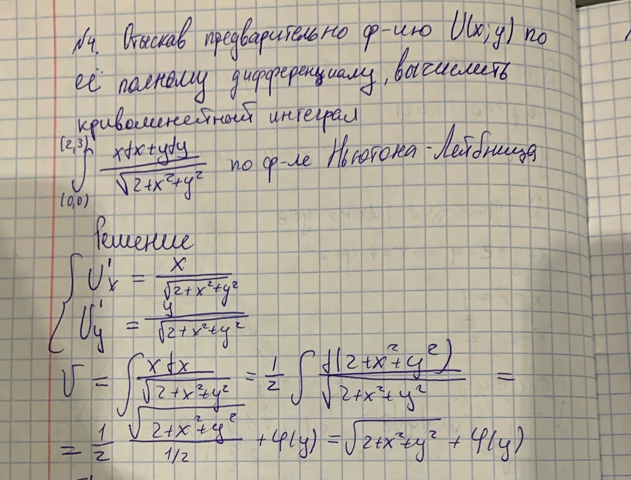 №4. Отыскав предварительно ф-ию U(x;y) по
её полному дифференциалу, вычислить
криволинейный интеграл
∫_(0,0)^(2,3) (xdx+ydy)/√(2+x²+y²) по ф-ле Ньютона-Лейбница
Решение
{ U'x = x/√(2+x²+y²)
U'y = y/√(2+x²+y²)
U = ∫ xdx/√(2+x²+y²) = 1/2 ∫ d(2+x²+y²)/√(2+x²+y²) =
= 1/2 √(2+x²+y²)/(1/2) + φ(y) = √(2+x²+y²) + φ(y)